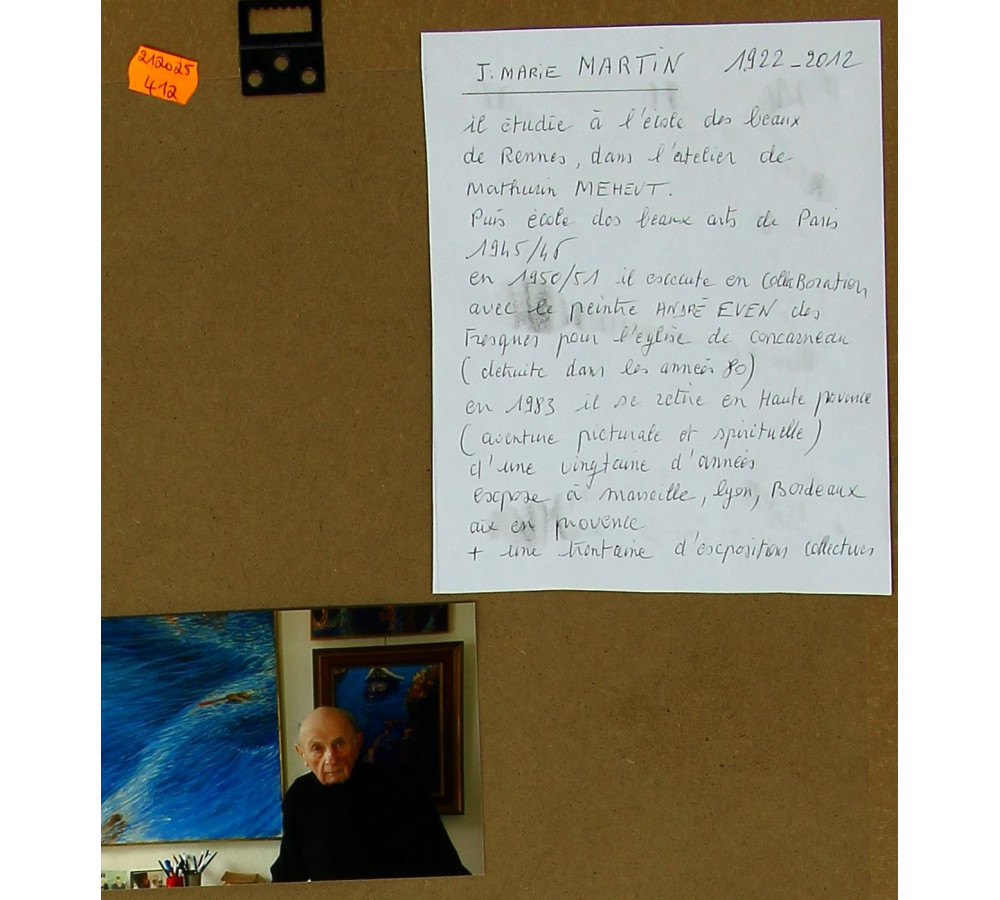 212025
412
J. MARIE MARTIN 1922-2012
il étudie à l'école des beaux
de Rennes, dans l'atelier de
Mathurin MEHEUT.
Puis école des beaux arts de Paris
1945/46
en 1950/51 il execute en CollaBoration
avec le peintre ANDRÉ EVEN des
Fresques pour l'église de concarneau
(détruite dans les années 80)
en 1983 il se retire en Haute provence
(aventure picturale et spirituelle)
d'une vingtaine d'années
expose à marseille, lyon, Bordeaux
aix en provence
+ une trentaine d'expositions collectives